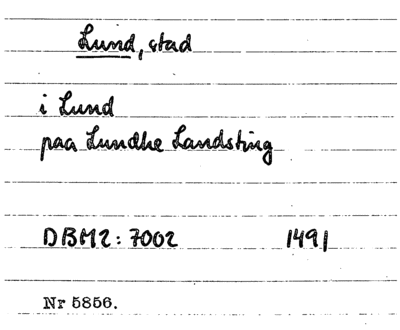 Lund, stad
i Lund
paa Lundhe Landsting
DBM2: 7002 1491
Nr 5856.